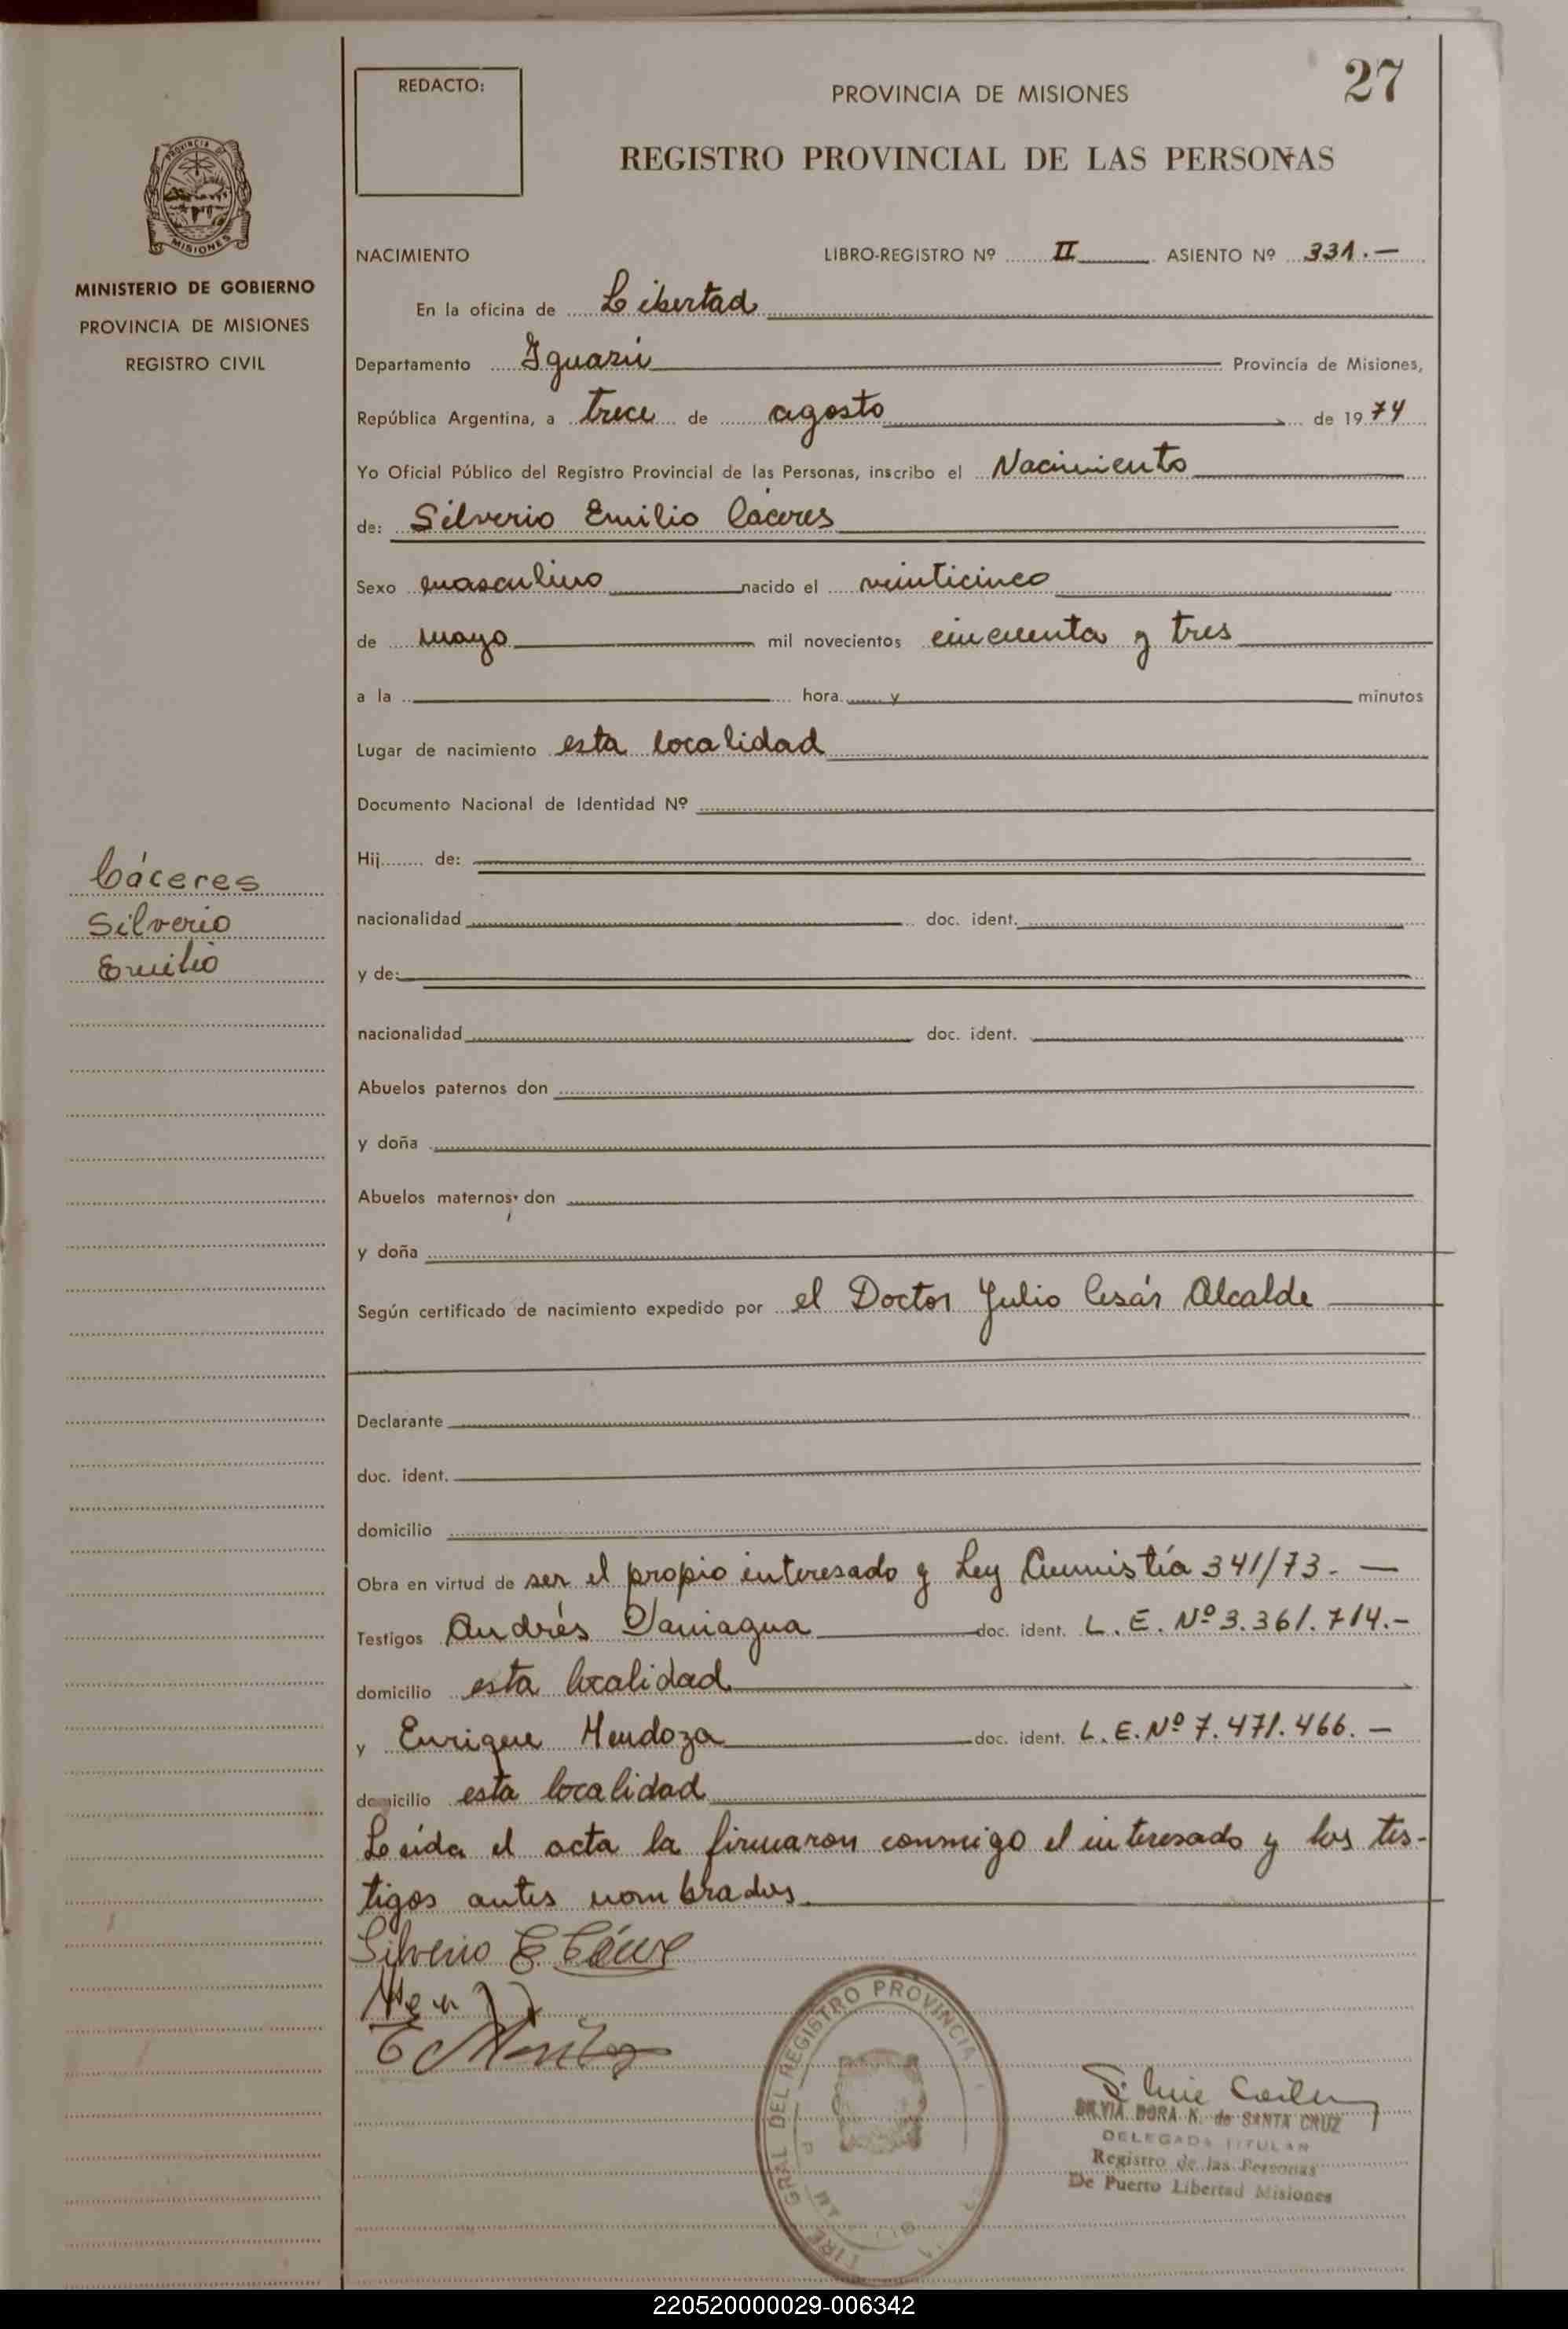 27
REDACTO:
PROVINCIA DE MISIONES
REGISTRO PROVINCIAL DE LAS PERSONAS
PROVINCIA DE
MISIONES
MINISTERIO DE GOBIERNO
PROVINCIA DE MISIONES
REGISTRO CIVIL
NACIMIENTO LIBRO-REGISTRO Nº II ASIENTO Nº 331.-
En la oficina de Libertad
Departamento Iguazú Provincia de Misiones,
República Argentina, a trece de agosto de 1974
Yo Oficial Público del Registro Provincial de las Personas, inscribo el Nacimiento
de: Silverio Emilio Cáceres
Sexo masculino nacido el veinticinco
de mayo mil novecientos cincuenta y tres
a la hora y minutos
Lugar de nacimiento esta localidad
Documento Nacional de Identidad Nº
Hij de:
Cáceres
Silverio
Emilio
nacionalidad doc. ident.
y de:
nacionalidad doc. ident.
Abuelos paternos don
y doña
Abuelos maternos don
y doña
Según certificado de nacimiento expedido por el Doctor Julio Cesár Alcalde
Declarante
doc. ident.
domicilio
Obra en virtud de ser el propio interesado y Ley Amnistía 341/73.-
Testigos Andrés Paniagua doc. ident. L.E. Nº 3.361.714.-
domicilio esta localidad
y Enrique Mendoza doc. ident. L.E. Nº 7.471.466.-
domicilio esta localidad
Leída el acta la firmaron conmigo el interesado y los tes-
tigos antes nombrados
Silverio E Cáceres
GRAL DEL REGISTRO PROVINCIAL
SILVIA DORA K. de SANTA CRUZ
DELEGADA TITULAR
Registro de las Personas
De Puerto Libertad Misiones
220520000029-006342